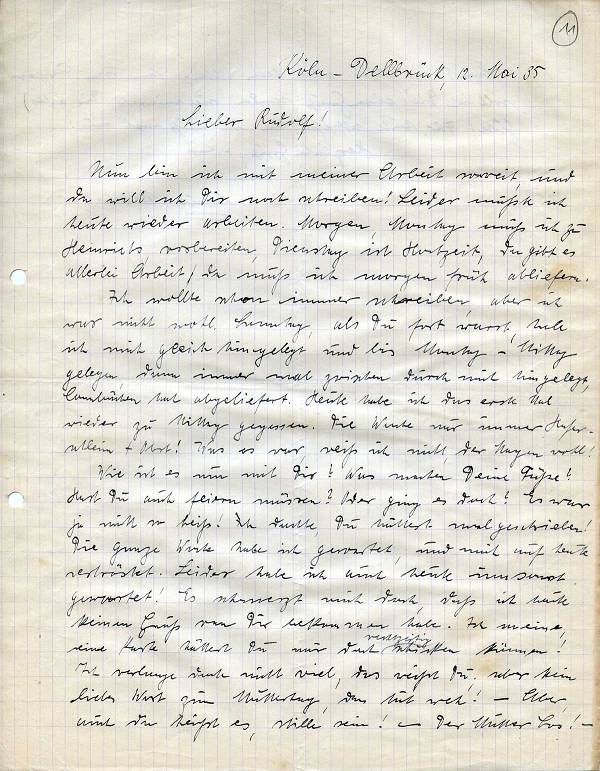 11
Köln – Dellbrück, 12. Mai 35
Lieber Rudolf!
Nun bin ich mit meiner Arbeit soweit, und
da will ich Dir noch schreiben! Leider mußte ich
heute wieder arbeiten. Morgen, Montag muß ich zu
Heinrichs vorbereiten, Dienstag ist Hochzeit, da gibt es
allerlei Arbeit, da muß ich morgen früh abliefern.
Ich wollte schon immer schreiben, aber ich
war nicht wohl. Sonntag, als Du fort warst, habe
ich mich gleich hingelegt und bis Montag – Mittag
gelegen dann immer mal zwischen durch mit hingelegt,
hat abgeliefert. Heute habe ich das erste Mal
wieder zu Mittag gegessen. Die Woche nur immer Hafer-
schleim + Obst! Was es war, weiß ich nicht der Magen wohl!
Wie ist es nun mit Dir? Was machen Deine Füße?
Hast Du auch feiern müssen? Oder ging es doch? Es war
ja nicht so heiß! Ich dachte, Du hättest mal geschrieben!
Die ganze Woche habe ich gewartet, und mich auf heute
vertröstet. Leider habe ich auch heute umsonst
gewartet! Es schmerzt mich doch, daß ich heute
keinen Gruß von Dir bekommen habe. Ich meine,
eine Karte hättest Du mir doch rechtzeitig schicken können!
Ich verlange doch nicht viel, das weißt Du, aber kein
liebes Wort zum Muttertag, das tut weh! – Aber,
auch da heißt es, stille sein! – Der Mutter Los! –